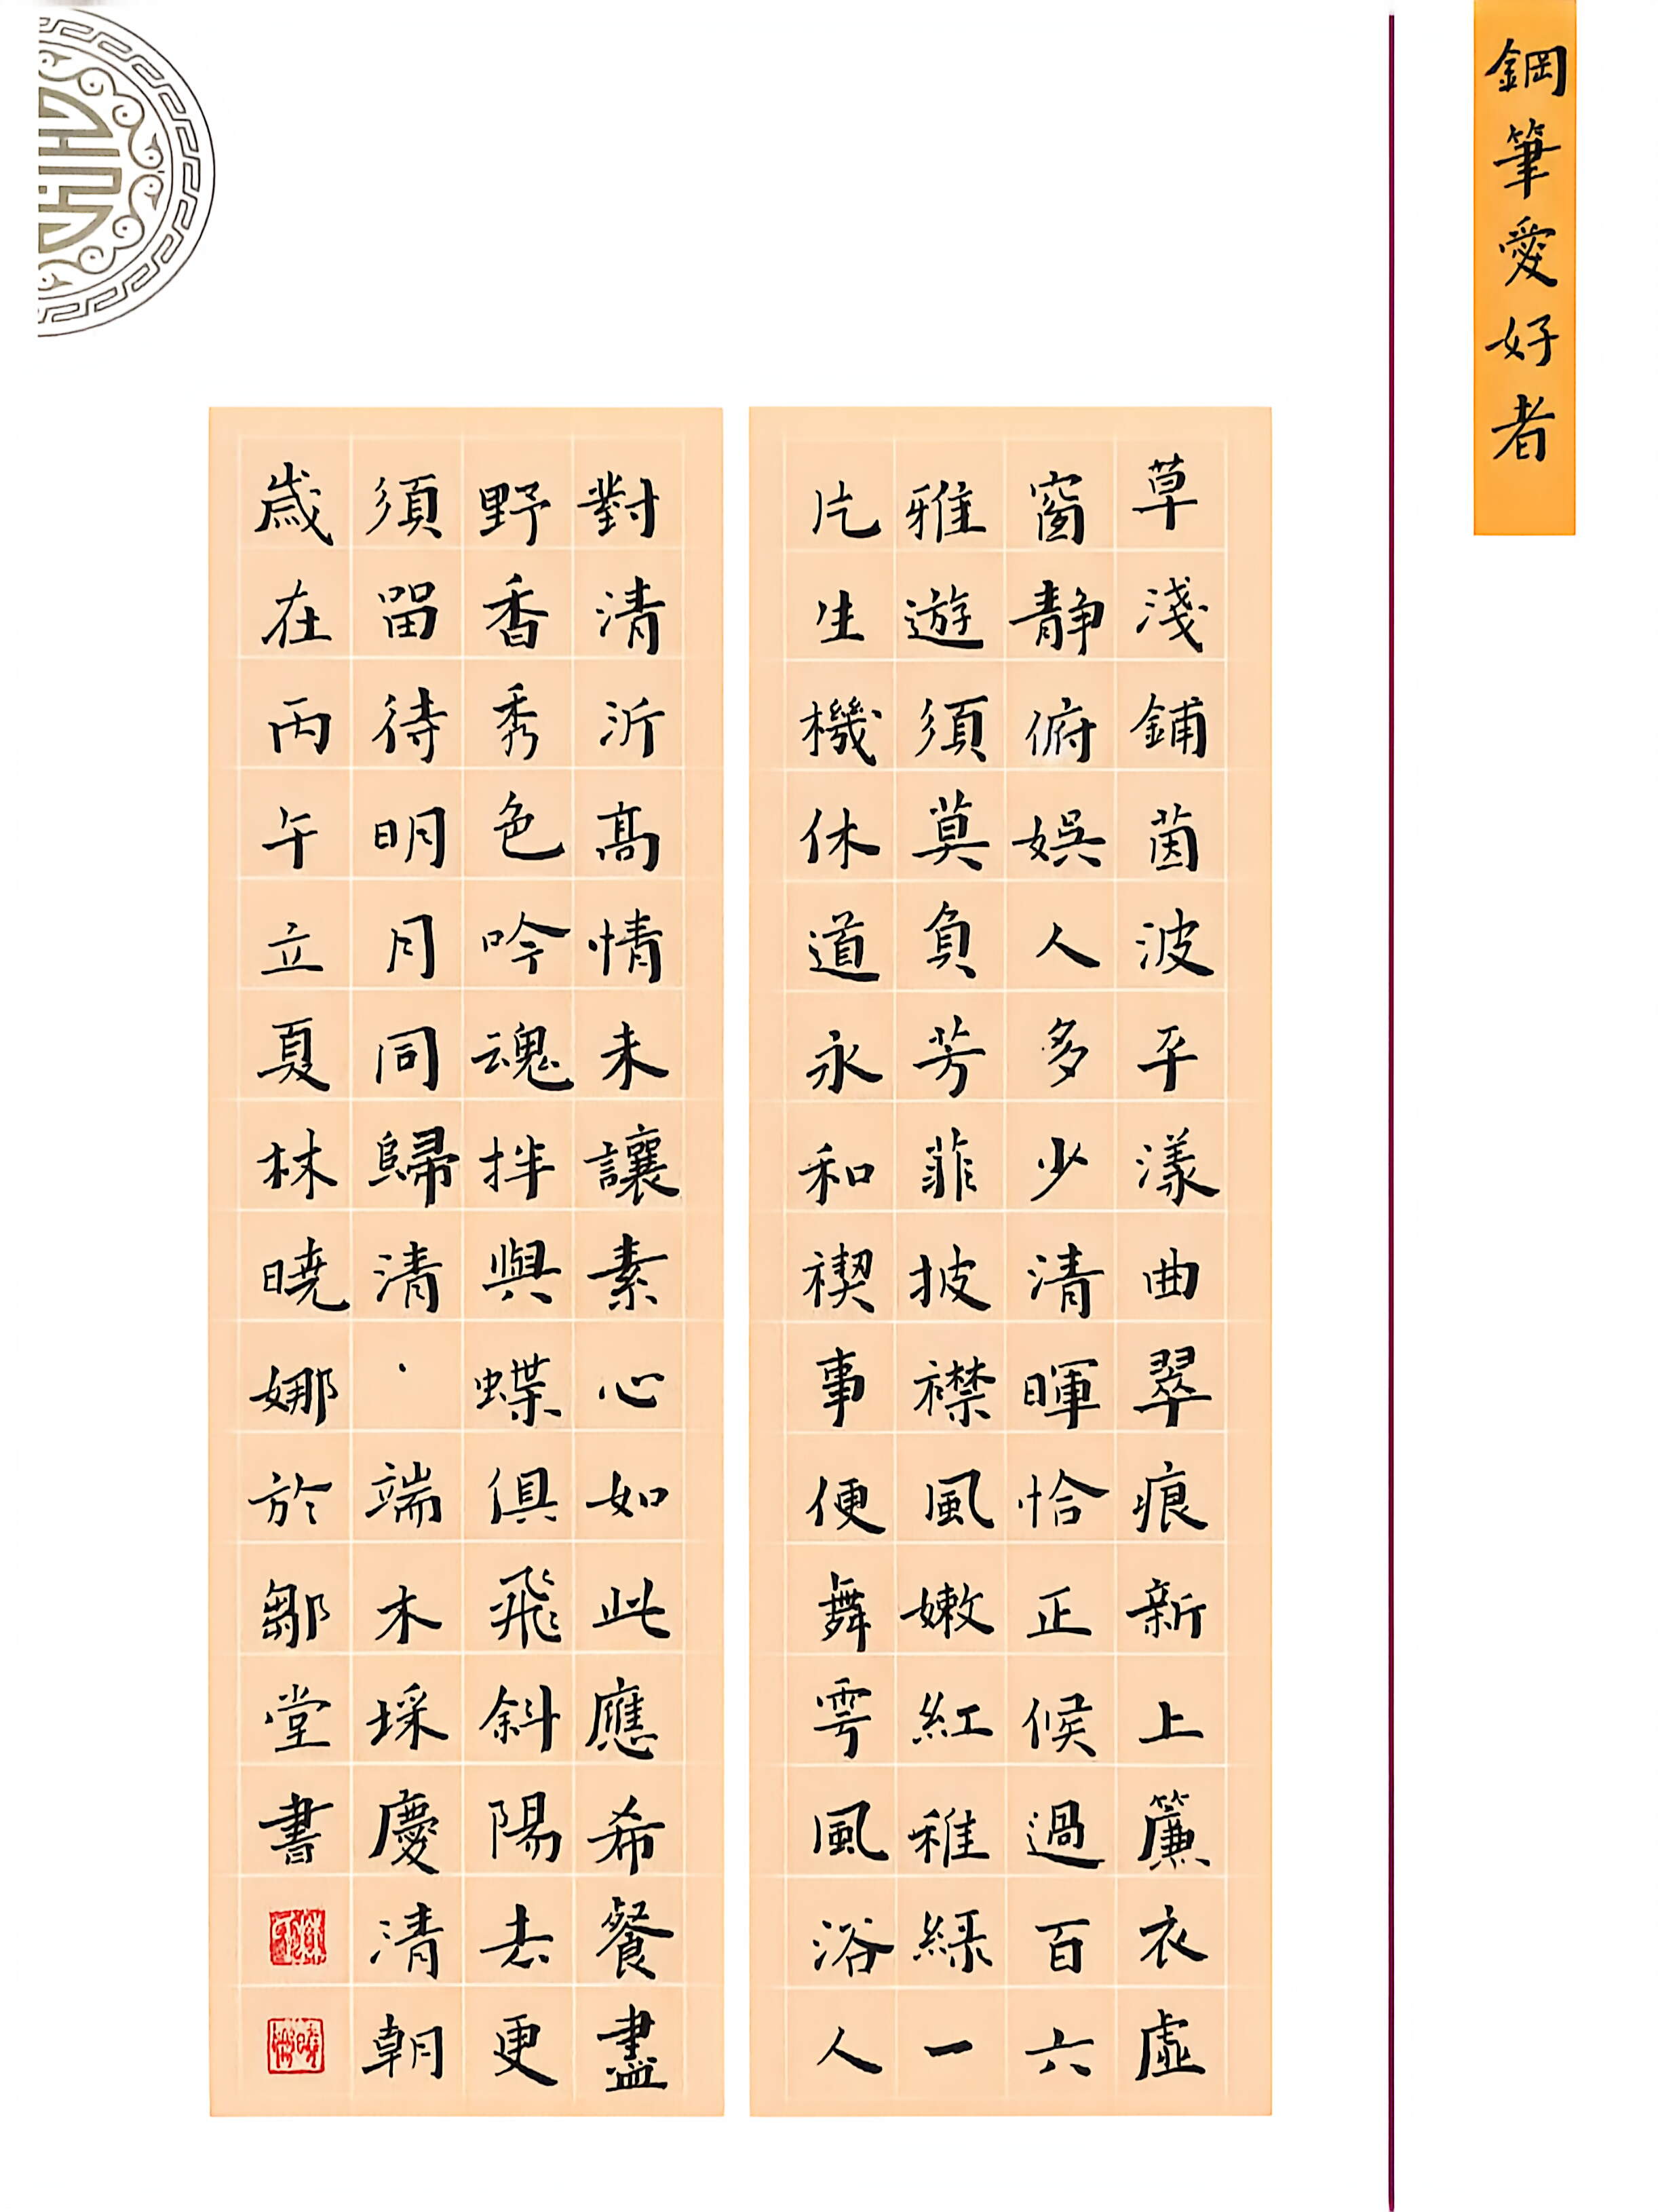 鋼筆愛好者
草淺鋪茵波平漾曲翠痕新上簾衣虛
窗靜俯娛人多少清暉恰正候過百六
雅遊須莫負芳菲披襟風嫩紅稚綠一
片生機休道永和禊事便舞雩風浴人
對清沂高情未讓素心如此應希餐盡
野香秀色吟魂拌與蝶俱飛斜陽去更
須留待明月同歸清·端木埰慶清朝
歲在丙午立夏林曉娜於鄒堂書